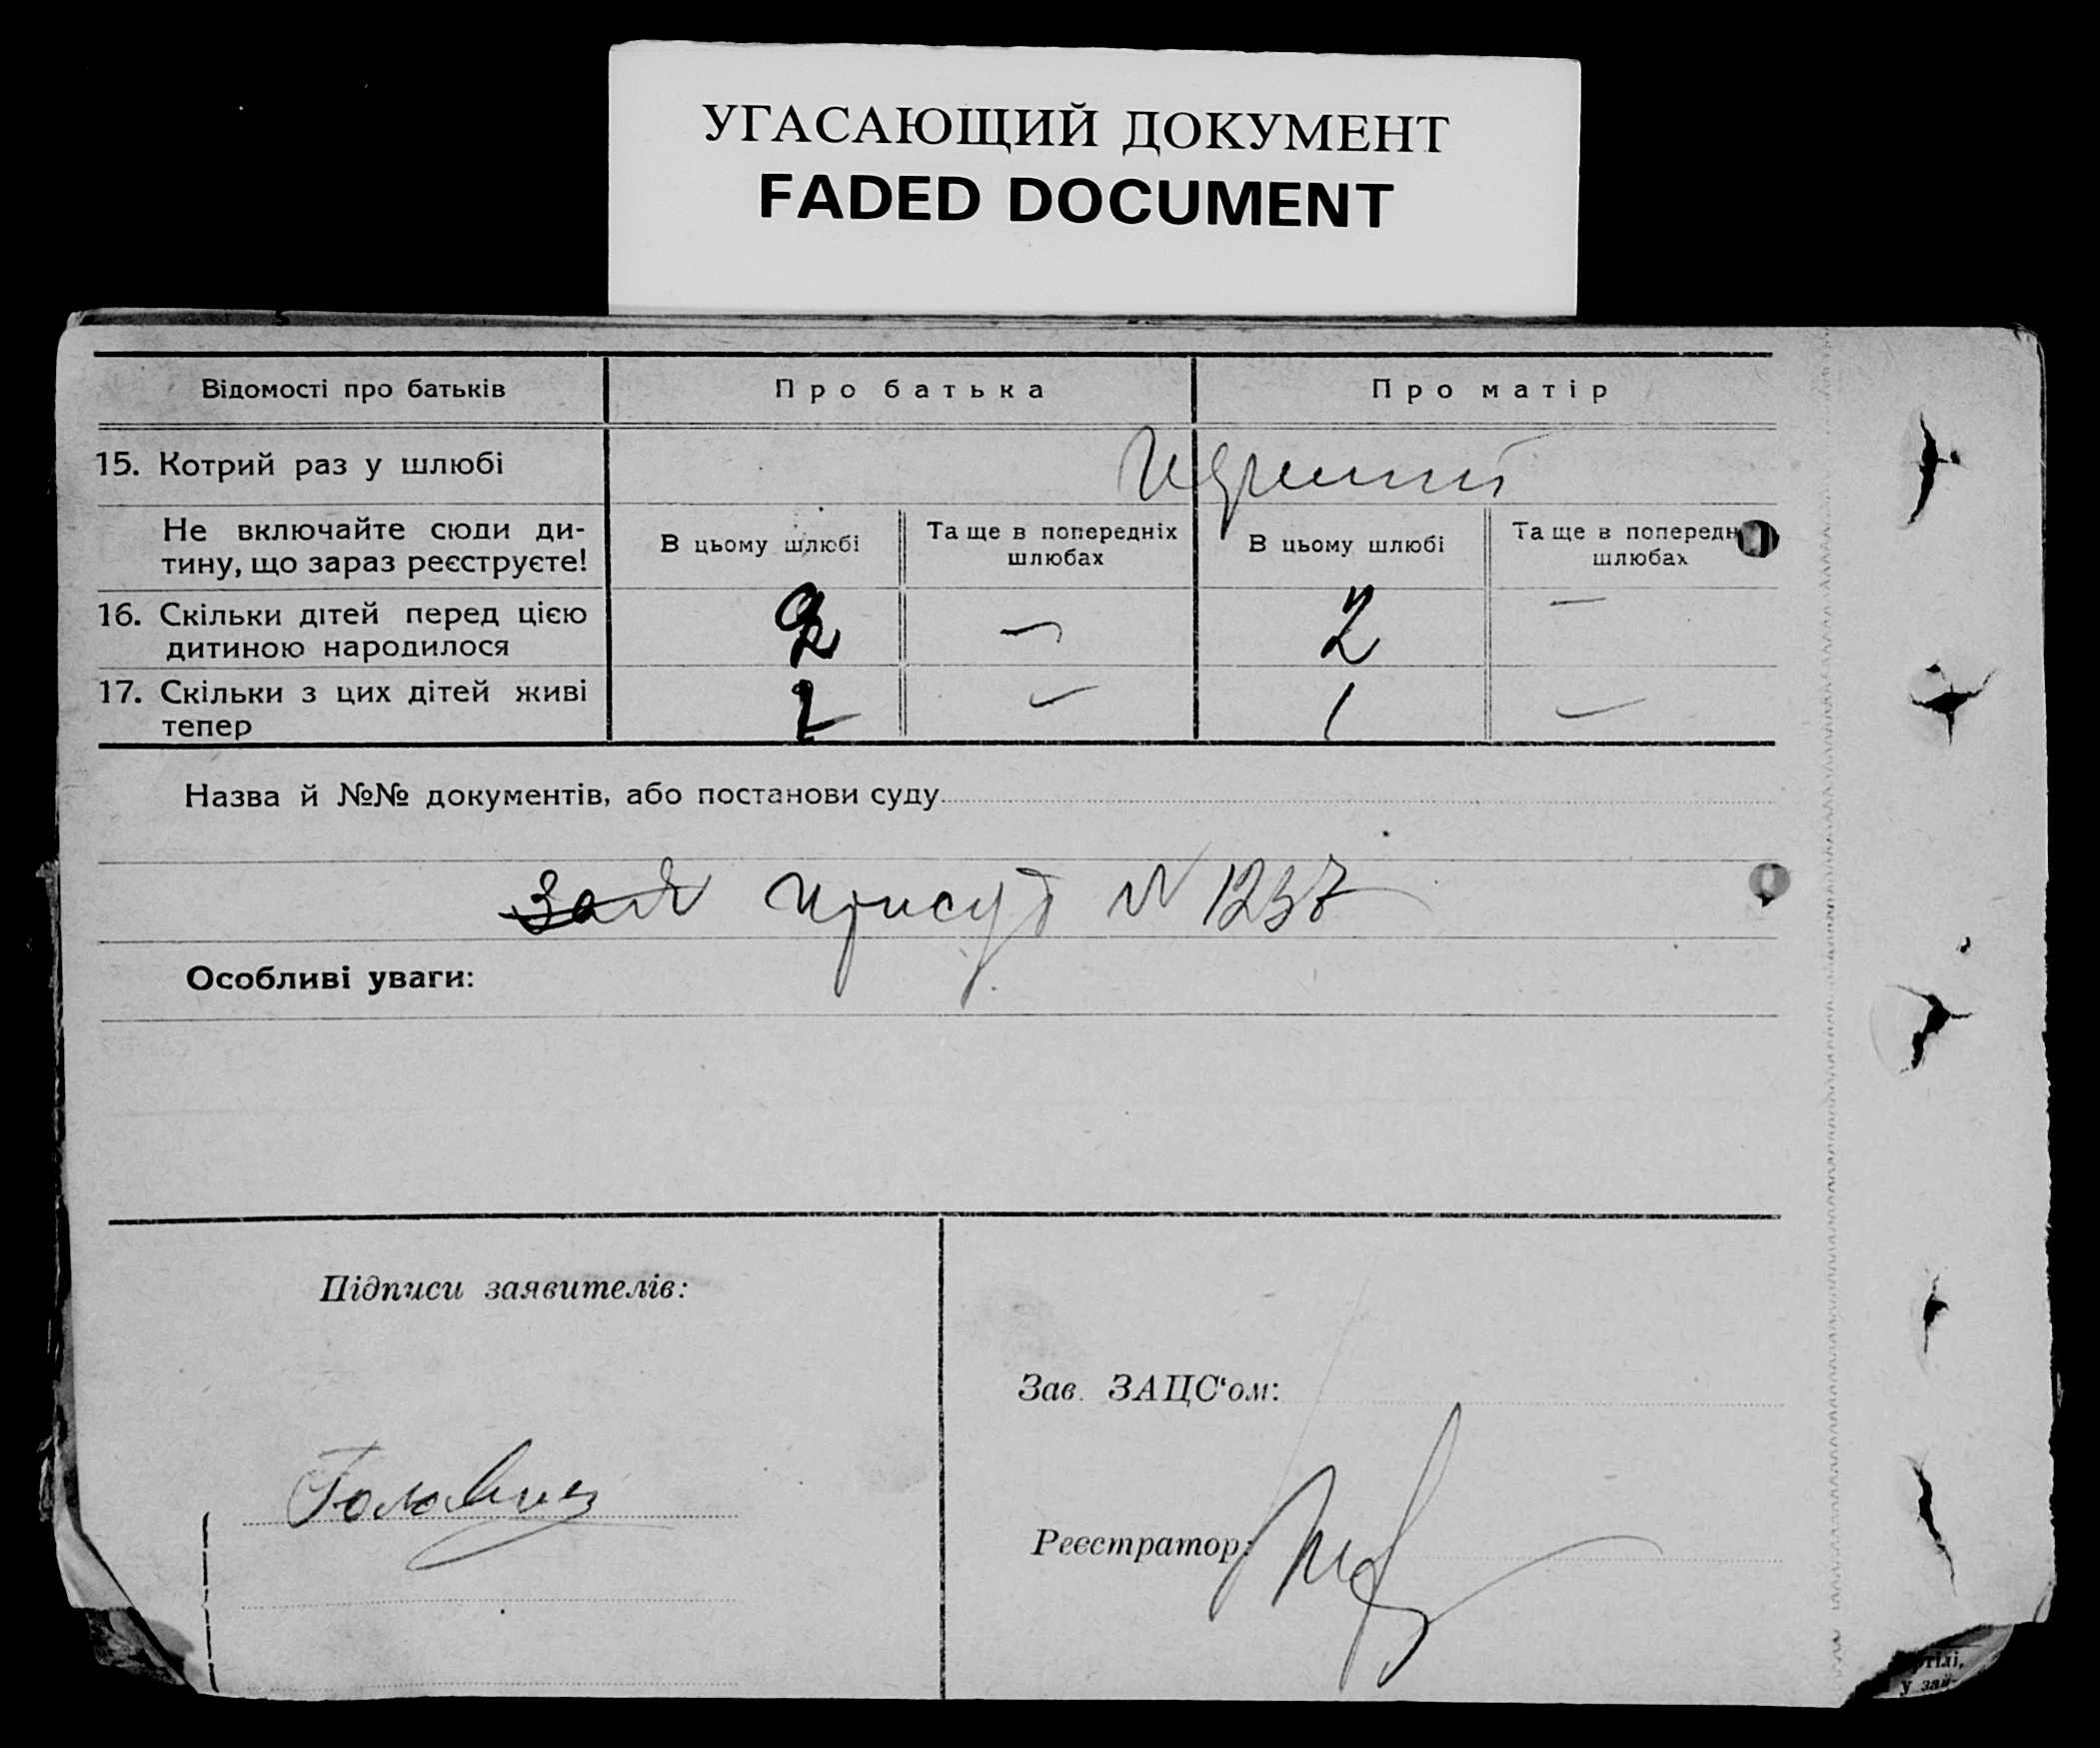 УГАСАЮЩИЙ ДОКУМЕНТ
FADED DOCUMENT
Відомості про батьків
Про батька
Про матір
15. Котрий раз у шлюбі
Не включайте сюди ди-
тину, що зараз реєструєте!
В цьому шлюбі
Та ще в попередніх
шлюбах
В цьому шлюбі
Та ще в попередн
шлюбах
16. Скільки дітей перед цією
дитиною народилося
2 — 2 —
17. Скільки з цих дітей живі
тепер
— 1 —
Назва й №№ документів, або постанови суду
N 1237
Особливі уваги:
Підписи заявителів:
Зав. ЗАЦС‘ом:
Реєстратор:
у зай-